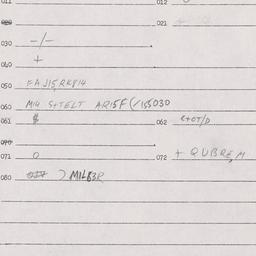 011 012
020 021
030 -/-
040 +
050 FAJ15RK814
060 M14 S+TELT AR15F(/155030
061 $ 062 E+OT/D
070
071 0 072 + QUBRE,M
080 017 ) MIL63R